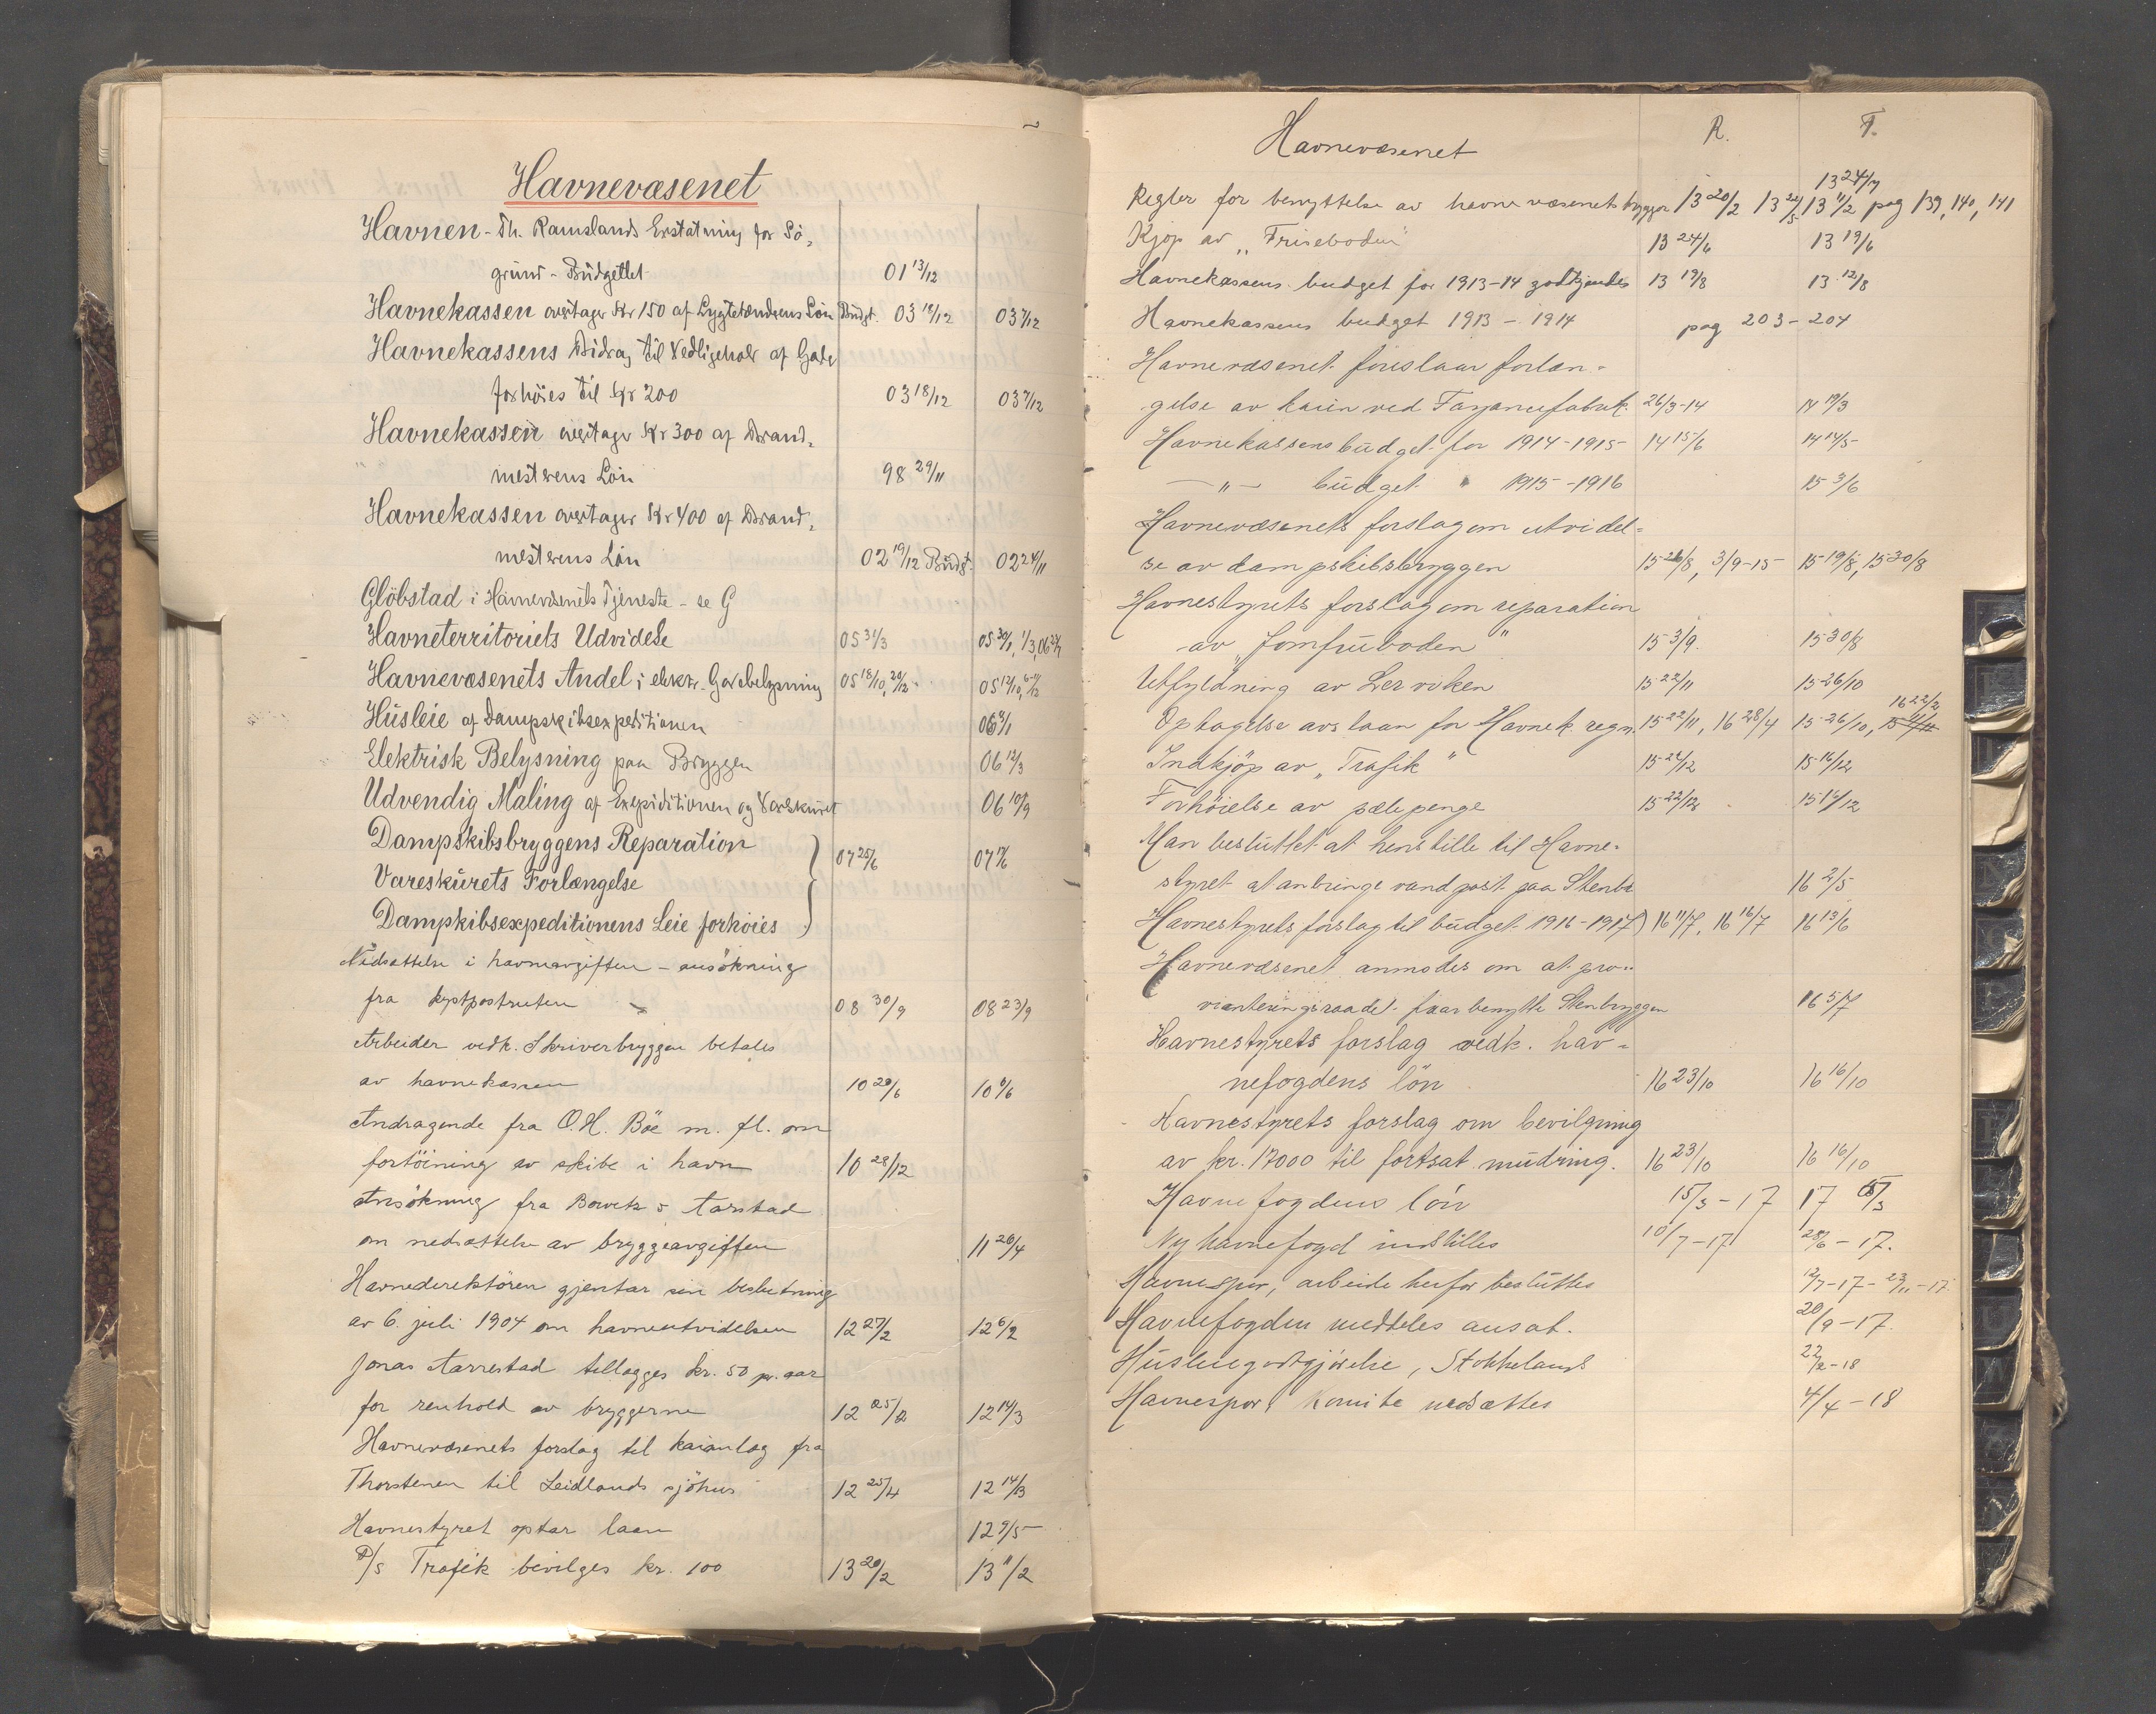 Havnevæsenet
Havnen - Th. Ramslands Erstatning for Sö-
grund - Budgettet 01 13/12
Havnekassen overtager Kr 150 af Lygtetænderens Lön Budgt. 03 18/12 03 7/12
Havnekassens Bidrag til Vedligehold af Gade
forhöies til Kr 200 03 18/12 03 7/12
Havnekassen overtager Kr 300 af Brand-
mesterens Lön 98 29/11
Havnekassen overtager Kr 400 af Brand-
mesterens Lön 02 19/12 Budgt. 02 24/11
Glöbstad i Havnevæsenets Tjeneste - se G
Havneterritoriets Udvidelse 05 31/3 05 30/1, 1/3, 06
Havnevæsenets Andel i elektr. Gadebelysning 05 18/10, 20/12 05 12/10,
Husleie af Dampskibsexpeditionen 06
Elektrisk Belysning paa Bryggen 06 12/3
Udvendig Maling af Expiditionen og Vareskuret 06 10/9
Dampskibsbryggens Reparation
Vareskurets Forlængelse 07 25/6 07
Dampkibsexpeditionens Leie forhöies
Nedsættelse i havneavgiften - ansökning
fra kystpostruten 08 30/9 08 23/9
Arbeider vedk. Skriverbryggen betales
av havnekassen 10 20/6 10 6/6
Andragende fra O. H. Böe m. fl. om
fortöining av skibe i havn 10 28/12
Ansökning fra Bowitz & Aarstad
om nedsættelse av bryggeavgiften 11 26/4
Havnedirektören gjentar sin beslutning
av 6. juli 1904 om havneutvidelsen 12 27/2 12 6/2
Jonas Aarrestad tillægges kr. 50 pr. aar
for renhold av bryggerne 12 25/2 12 14/3
Havnevæsenets forslag til kaianlæg fra
Thorstenen til Leidlands sjöhus 12 25/4 12 14/3
Havnestyret optar laan 12 9/5
D/S Trafik bevilges kr. 100 13 20/2 13 11/2
Havnevæsenet R. F.
13 24/7
Regler for benyttelse av havnevæsenets brygger 13 20/2 13 22/5 13 11/2 pag 139, 140, 141
Kjöp av "Friseboden" 13 24/6 13 19/6
Havnekassens budget for 1913-14 godkjendes 13 19/8 13 12/8
Havnekassens budget 1913 - 1914 pag 203 - 204
Havnevæsenet foreslaar forlæn-
gelse av kaien ved Fayancefabrik. 26/3-14 14 19/3
Havnekassens budget for 1914-1915 14 15/6 14 14/5
— " — budget " 1915-1916 15 3/6
Havnevæsenets forslag om utvidel-
se av dampskibsbryggen 15 26/8, 3/9-15 15 19/8, 15 30/8
Havnestyrets forslag om reparation
av "Jomfruboden" 15 3/9. 15 30/8
Utfyldning av Lerviken 15 22/11 15 26/10
16 22/2
Optagelse avs laan for Havnek. regn. 15 22/11, 16 28/4 15 26/10,
Indkjöp av "Trafik" 15 22/12 15 16/12
Forhöielse av pælepenge 15 22/12 15 14/12
Man besluttet at henstille til Havne-
styret at anbringe vandpost paa Stenbr 16 2/5
Havnestyrets forslag til budget 1916-1917) 16 11/7, 16 16/7 16 13/6
Havnevæsenet anmodes om at pro-
vianteringsraadet faar benytte Stenbryggen 16 5/7
Havnestyrets forslag vedk. hav-
nefogdens lön 16 23/10 16 16/10
Havnestyrets forslag om bevilgning
av kr. 17000 til fortsat mudring. 16 23/10 16 16/10
Havnefogdens lön 15/3 - 17 17 15/3
Ny havnefogd indstilles 10/7-17 28/6 - 17.
Havnespor, arbeide herfor besluttes 12/7-17 - 23/11-17
Havnefogden meddeles ansat. 20/9-17.
Husleiegodtgjörelse, Stokkeland 22/2-18
Havnespor, Komite nedsættes 4/4-18